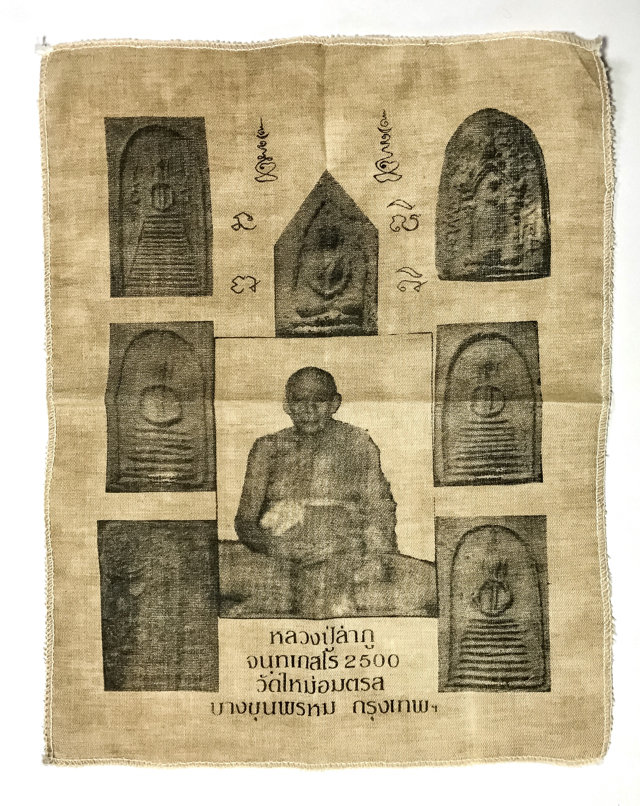 หลวงปู่ลำภู
จนฺทเกสโร 2500
วัดใหม่อมตรส
บางขุนพรหม กรุงเทพฯ